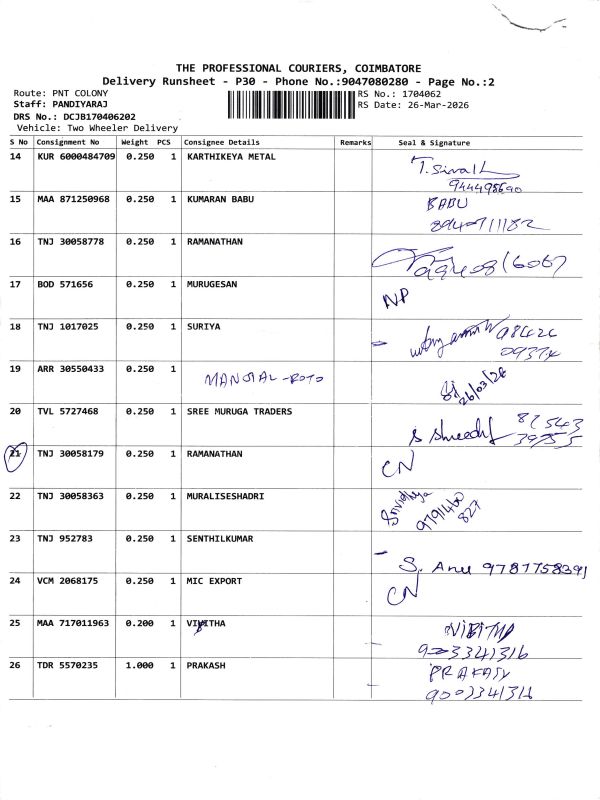 THE PROFESSIONAL COURIERS, COIMBATORE
Delivery Runsheet - P30 - Phone No.:9047080280 - Page No.:2
Route: PNT COLONY
RS No.: 1704062
Staff: PANDIYARAJ
RS Date: 26-Mar-2026
DRS No.: DCJB170406202
Vehicle: Two Wheeler Delivery
S No Consignment No Weight PCS Consignee Details Remarks Seal & Signature
14 KUR 6000484709 0.250 1 KARTHIKEYA METAL
15 MAA 871250968 0.250 1 KUMARAN BABU BABU
16 TNJ 30058778 0.250 1 RAMANATHAN
17 BOD 571656 0.250 1 MURUGESAN NP
18 TNJ 1017025 0.250 1 SURIYA
19 ARR 30550433 0.250 1
26/03/26
20 TVL 5727468 0.250 1 SREE MURUGA TRADERS
21 TNJ 30058179 0.250 1 RAMANATHAN CN
22 TNJ 30058363 0.250 1 MURALISESHADRI
9791460
827
23 TNJ 952783 0.250 1 SENTHILKUMAR
S. Anu 9787758391
24 VCM 2068175 0.250 1 MIC EXPORT CN
25 MAA 717011963 0.200 1
9003341316
26 TDR 5570235 1.000 1 PRAKASH PRAKASH
9003341316